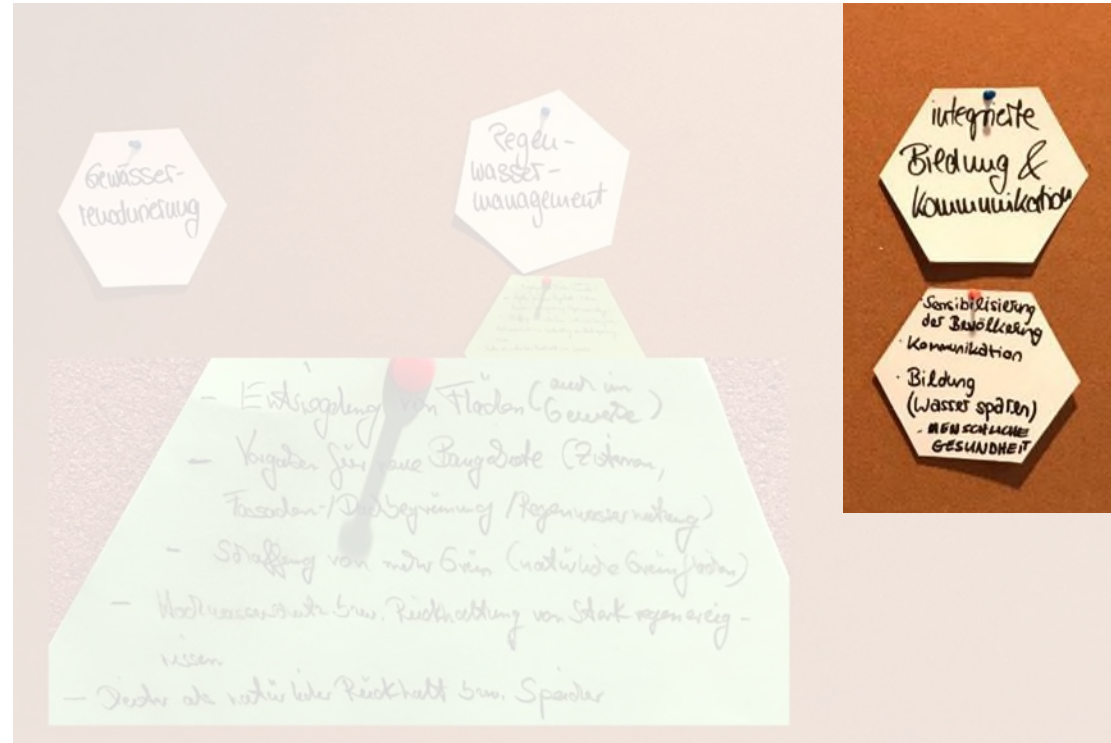 Gewässer-
renaturierung
Regen-
wasser-
management
- Entsiegelung von Flächen (auch im
Gewerbe)
- Vorgaben für neue Baugebiete (Zisternen,
Fassaden-/Dachbegrünung/Regenwassernutzung)
- Schaffung von mehr Grün (natürliche Grünflächen)
- Hochwasserschutz bzw. Rückhaltung von Starkregenereig-
nissen
- als natürlicher Rückhalt bzw. Speicher
integrierte
Bildung &
Kommunikation
· Sensibilisierung
der Bevölkerung
· Kommunikation
· Bildung
(Wasser sparen)
· MENSCHLICHE
GESUNDHEIT